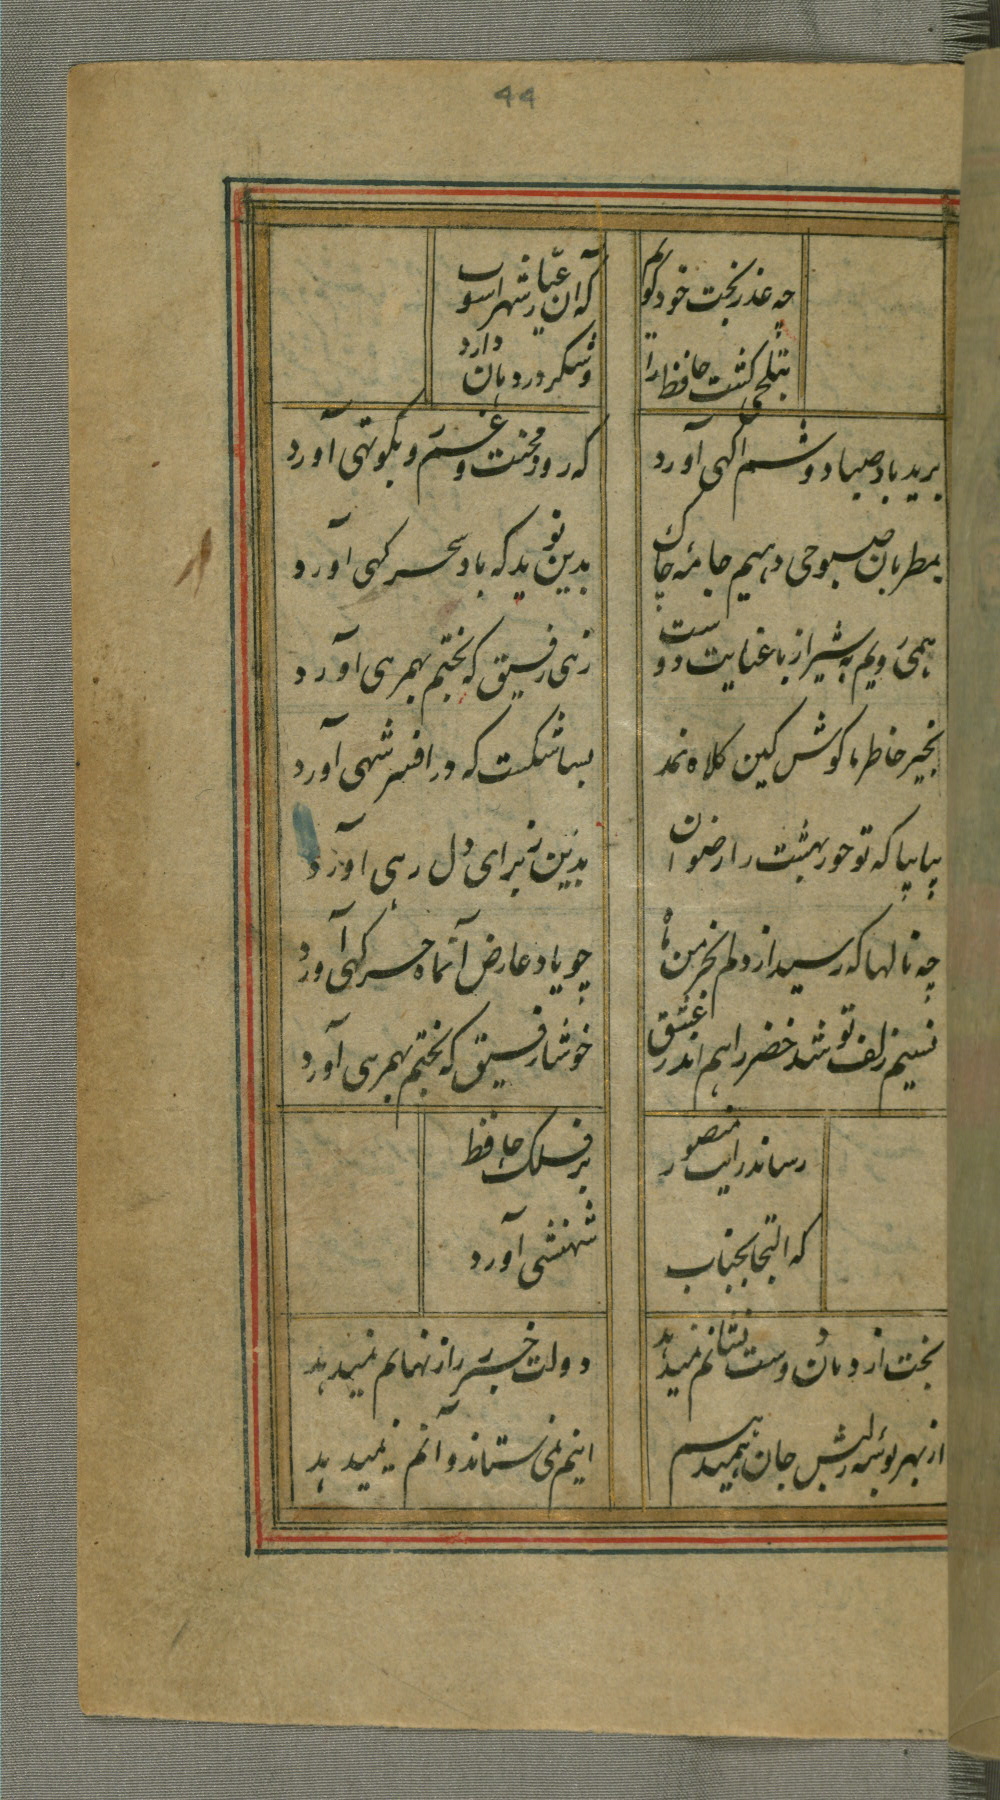 44
چه عذر بخت خود گویم که ان عیار شهراسوب
بتلخی کشت حافظ را و شکر در دهان دارد
برید باد صبا دوشم اکهی آورد که روز محنت و غم رو بکوتهی آورد
بمطربان صبوحی دهیم جامه چاک بدین نوید که باد سحر کهی اورد
همی رویم به شیراز با عنایت دوست زهی رفیق که بختم بهمرهی اورد
بخیر خاطر ما کوش کین کلاه نمد بسا شکست که در افسر شهی آورد
بیا بیا که تو حور بهشت را رضوان بدین ز برای دل رهی آورد
چه نالها که رسید از دلم بخرمن ماه چو یاد عارض آنماه خرکهی آورد
نسیم زلف تو شد خضر راهم اندر عشق خوشا رفیق که بختم بهمرهی آورد
رساند رایت منصور بر فلک حافظ
که التجا بجناب شهنشهی آورد
بخت از دهان دوست نشانم نمیدهد دولت خبر ز راز نهانم نمیدهد
از بهر بوسه ز لبش جان همیدهم اینم نمی ستاند و آنم نمیدهد